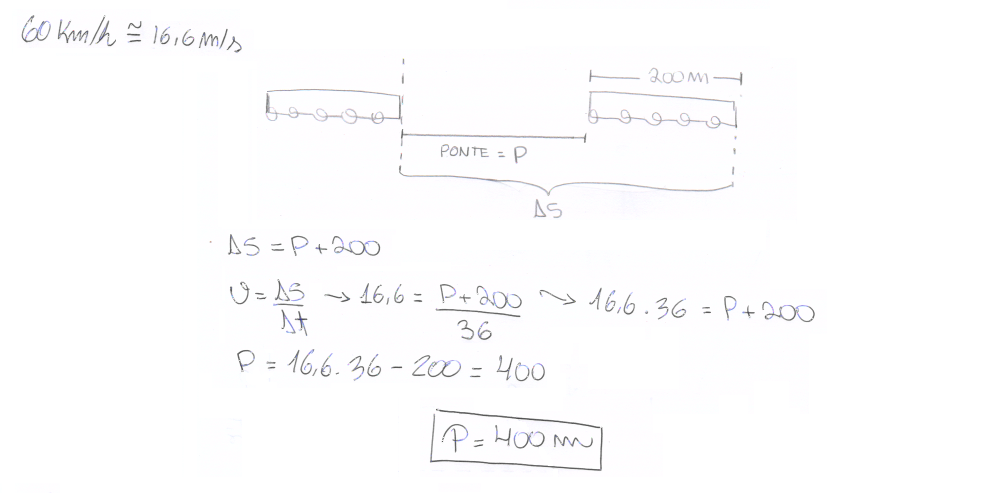 60 Km/h ≅ 16,6 m/s
200 m
PONTE = P
ΔS
ΔS = P + 200
V = ΔS/Δt → 16,6 = P + 200/36 → 16,6 . 36 = P + 200
P = 16,6 . 36 - 200 = 400
P = 400 m